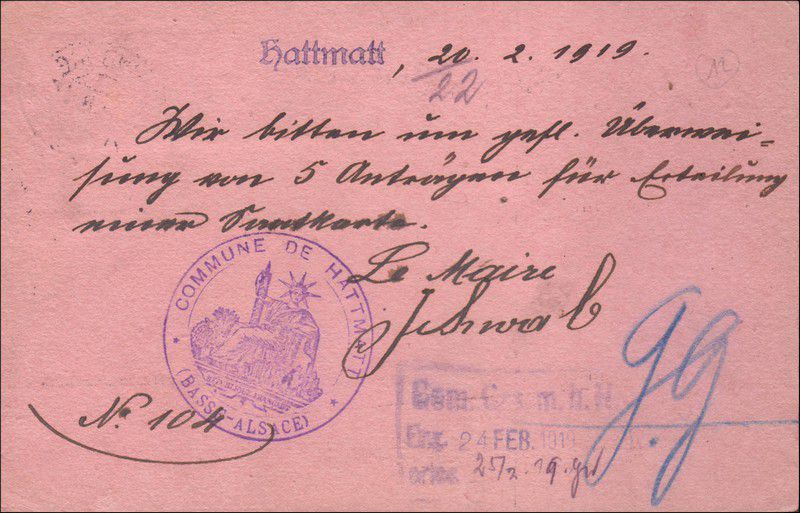 Hattmatt, 20. 2. 1919.
22
12
Wir bitten um gefl. Überwei-
sung von 5 Anträgen für Erteilung
einer Saatkarte.
Le Maire
Schwab
COMMUNE DE HATTMATT
(BASSE-ALSACE)
No 104
G.m.b.H.
Eing. 24 FEB. 1919
25/2. 19.
gg